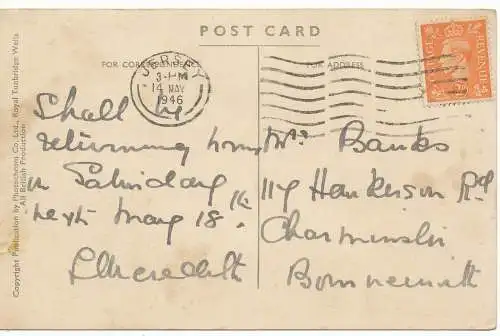 POST CARD
FOR CORRESPONDENCE
FOR ADDRESS
JERSEY
3-PM
14 MAY
1946
POSTAGE REVENUE
Shall be
returning home
on Saturday
next May 18th.
Mrs Banks
119 Hankinson Rd
Charminster
Bournemouth
Copyright Publication by Photochrom Co., Ltd., Royal Tunbridge Wells
All British Production